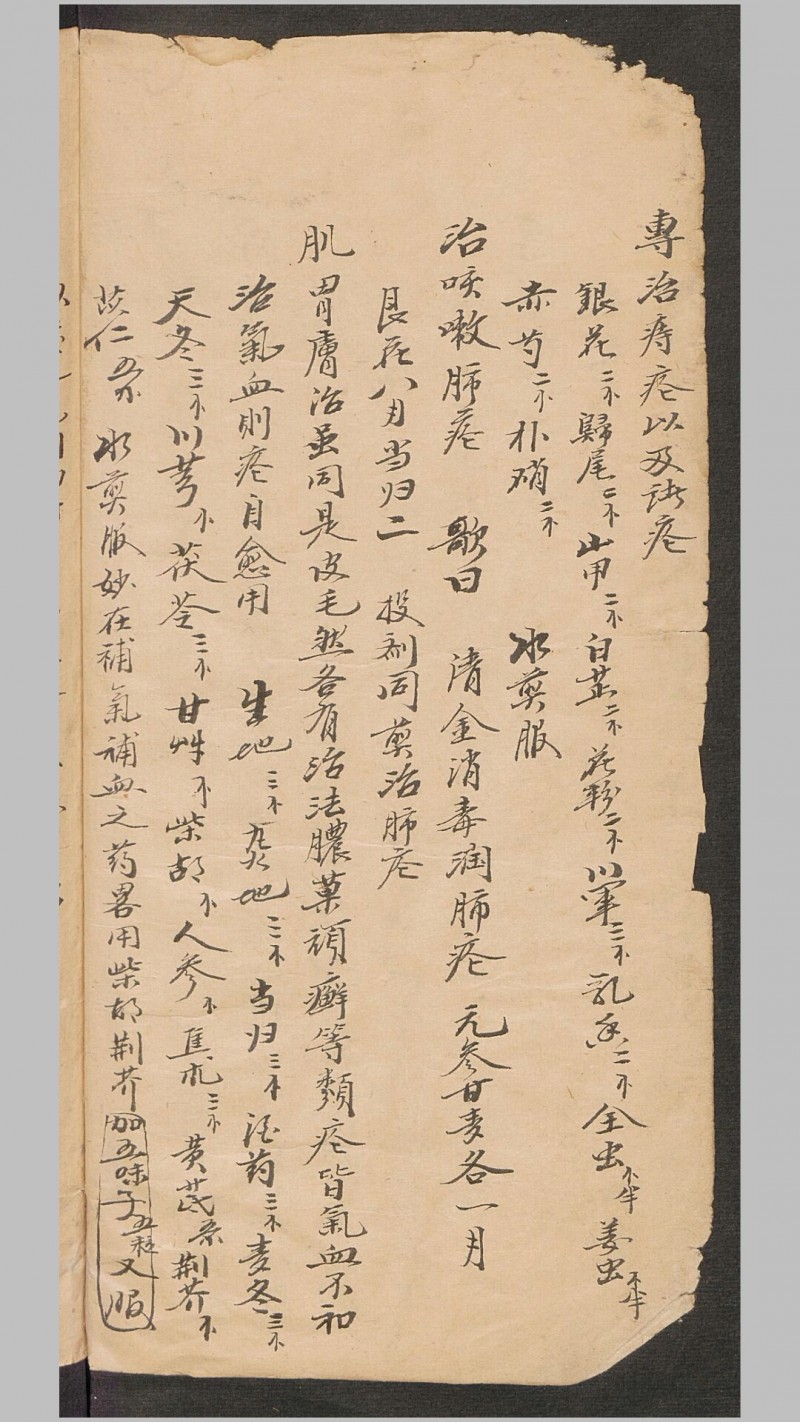 專治痔疮以及諸疮
銀花二不歸尾二不山甲二不白芷二不花粉二不川軍三不乳香二不全虫不半姜虫不半
赤芍二不朴硝二不 水煎服
治咳嗽肺疮 歌曰 清金消毒潤肺疮 元参甘麦各一月
艮花八月当归二 投剂同煎治肺疮
肌胃膚治虽同是皮毛然各有治法膿菓頑癬等類疮皆氣血不和
治氣血則疮自愈用 生地三不 地三不当归三不 药三不麦冬三不
天冬三不川芎不茯苓三不甘艸不柴胡不人参不焦朮三不黄茋 荆芥不
仁 水煎服妙在補氣補血之药畧用柴胡荆芥加五味子五粒又服